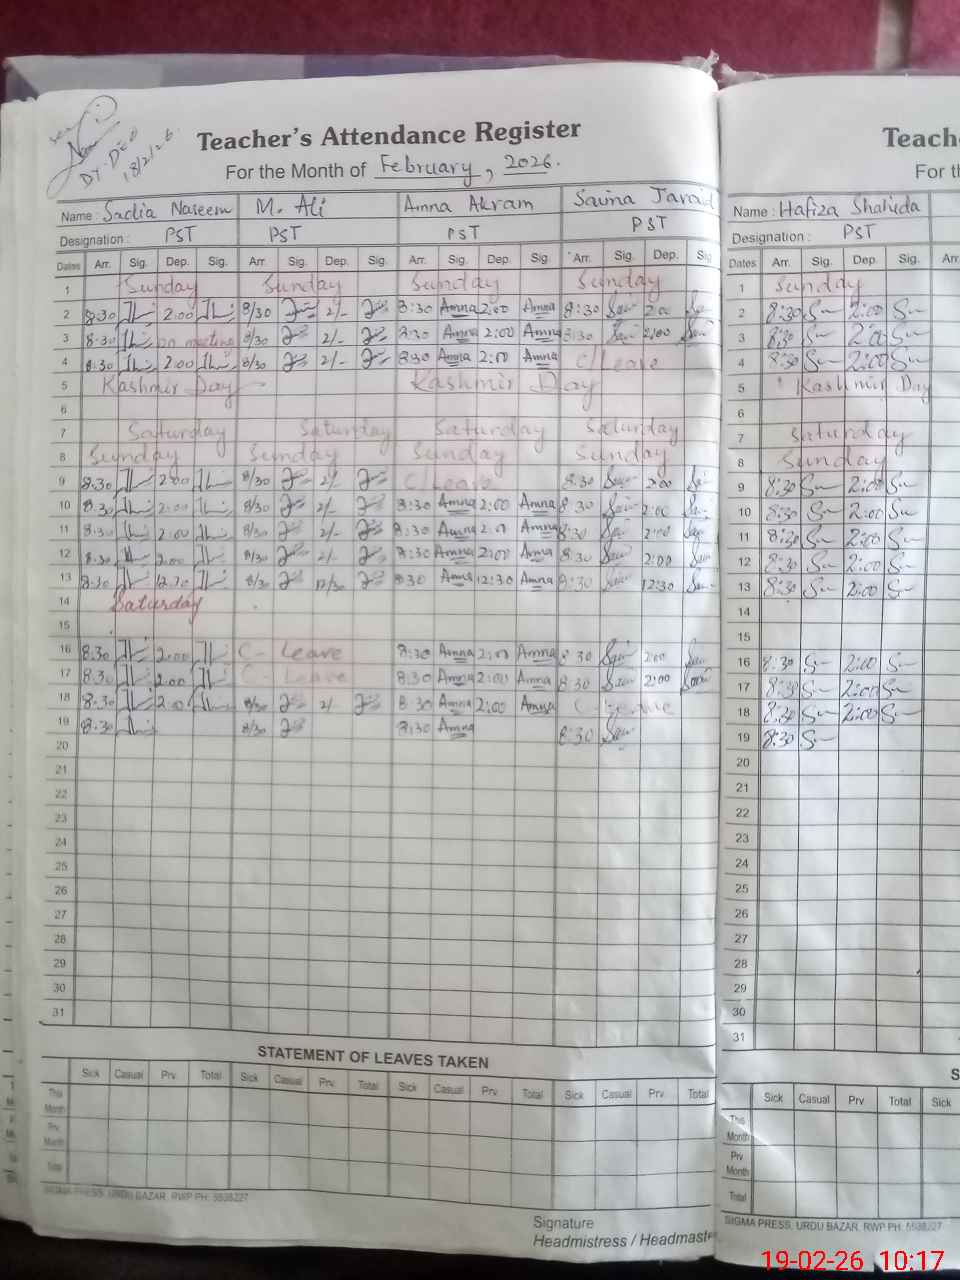 Dy. DEO
18/2/26
Teacher's Attendance Register
For the Month of February, 2026.
Name : Sadia Naseem M. Ali Amna Akram Saima Javaid
Designation : PST PST PST PST
Dates Arr. Sig. Dep. Sig. Arr. Sig. Dep. Sig. Arr. Sig. Dep. Sig. Arr. Sig. Dep. Sig.
1 Sunday Sunday Sunday Sunday
2 8:30 2:00 8/30 2/- 8:30 Amna 2:00 Amna 8:30 2:00
3 8:30 on meeting 8/30 2/- 8:30 Amna 2:00 Amna 8:30 2:00
4 8:30 2:00 8/30 2/- 8:30 Amna 2:00 Amna C/Leave
5 Kashmir Day Kashmir Day
6
7 Saturday Saturday Saturday Saturday
8 Sunday Sunday Sunday Sunday
9 8:30 2:00 8/30 2/- C/Leave 8:30 2:00
10 8:30 2:00 8/30 2/- 8:30 Amna 2:00 Amna 8:30 2:00
11 8:30 2:00 8/30 2/- 8:30 Amna 2:00 Amna 8:30 2:00
12 8:30 2:00 8/30 2/- 8:30 Amna 2:00 Amna 8:30 2:00
13 8:30 12:30 8/30 12/30 8:30 Amna 12:30 Amna 8:30 12:30
14 Saturday
15
16 8:30 2:00 C - Leave 8:30 Amna 2:00 Amna 8:30 2:00
17 8:30 2:00 C - Leave 8:30 Amna 2:00 Amna 8:30 2:00
18 8:30 2:00 8/30 2/- 8:30 Amna 2:00 Amna C - Leave
19 8:30 8/30 8:30 Amna 8:30
20
21
22
23
24
25
26
27
28
29
30
31
STATEMENT OF LEAVES TAKEN
Sick Casual Prv. Total Sick Casual Prv. Total Sick Casual Prv. Total Sick Casual Prv. Total
This Month
Prv. Month
Total
SIGMA PRESS, URDU BAZAR, RWP PH: 5538227
Signature
Headmistress / Headmaste
Teach
For t
Name : Hafiza Shahida
Designation : PST
Dates Arr. Sig. Dep. Sig. Arr.
1 Sunday
2 8:30 2:00
3 8:30 2:00
4 8:30 2:00
5 Kashmir Day
6
7 Saturday
8 Sunday
9 8:30 2:00
10 8:30 2:00
11 8:30 2:00
12 8:30 2:00
13 8:30 2:00
14
15
16 8:30 2:00
17 8:30 2:00
18 8:30 2:00
19 8:30
20
21
22
23
24
25
26
27
28
29
30
31
S
Sick Casual Prv Total Sick
This Month
Prv Month
Total
SIGMA PRESS, URDU BAZAR, RWP PH: 5538227
19-02-26 10:17